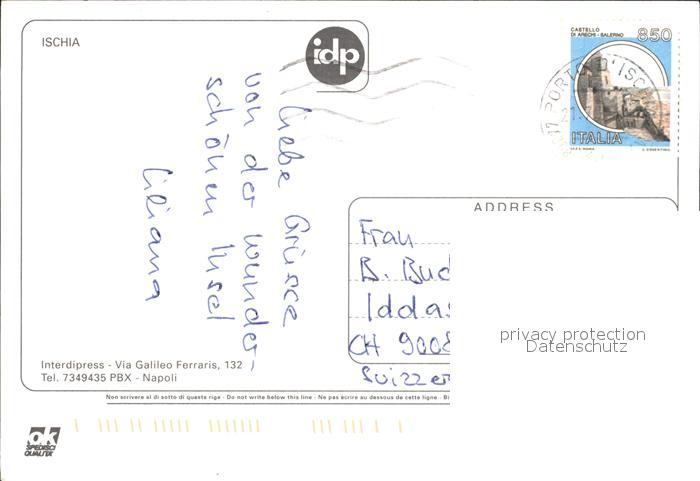 ISCHIA
idp
CASTELLO
DI ARECHI - SALERNO
850
ITALIA
PORTO D'ISC
Liebe Grüsce
von der wunder-
schönen Insel
Liliana
ADDRESS
Frau
B. Bud
Iddas
CH 9008
Suizzer
privacy protection
Datenschutz
Interdipress - Via Galileo Ferraris, 132
Tel. 7349435 PBX - Napoli
Non scrivere al di sotto di questa riga - Do not write below this line - Ne pas écrire au dessous de cette ligne - Bi
ok
SPEDISCI
QUALITA'